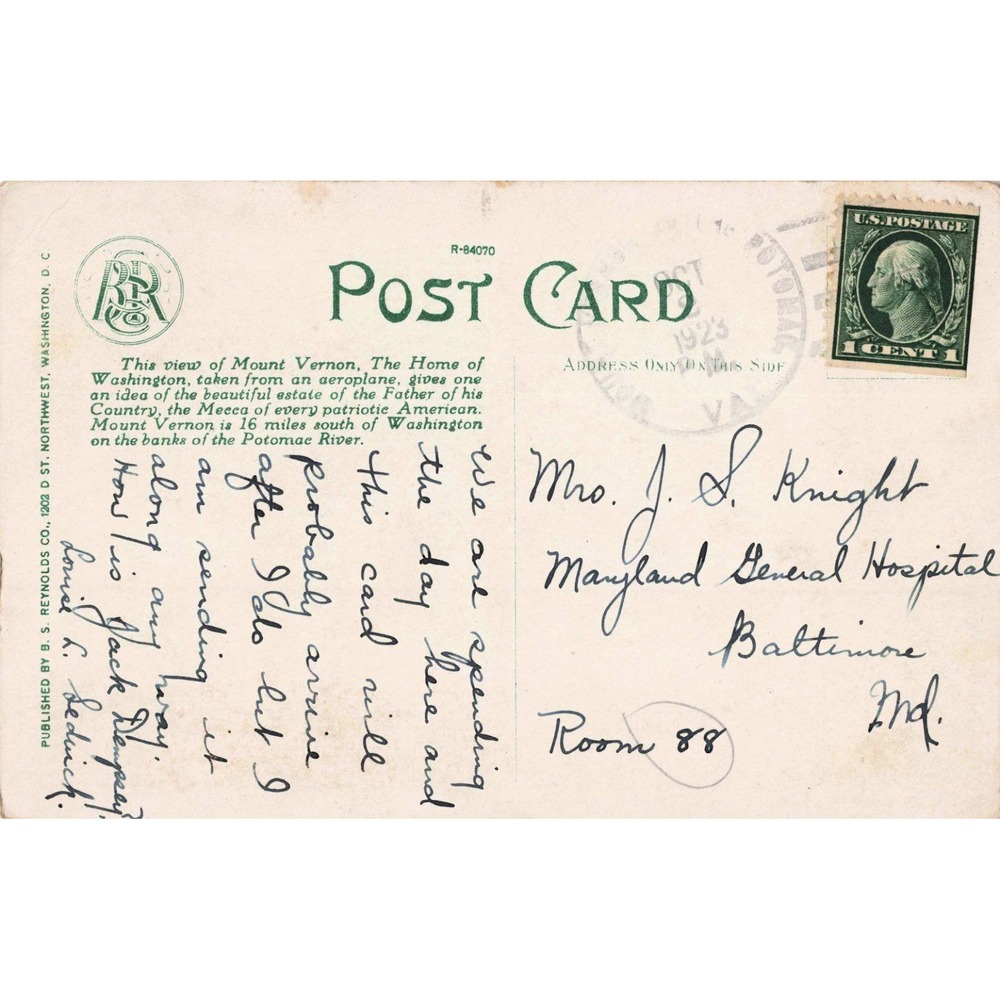 R-84070
POST CARD
BSR Co
This view of Mount Vernon, The Home of
Washington, taken from an aeroplane, gives one
an idea of the beautiful estate of the Father of his
Country, the Mecca of every patriotic American.
Mount Vernon is 16 miles south of Washington
on the banks of the Potomac River.
PUBLISHED BY B. S. REYNOLDS CO., 1202 D ST. NORTHWEST, WASHINGTON, D. C
We are spending
the day here and
this card will
probably arrive
after I do but I
am sending it
along any way.
How is Jack Dempsey?
Louise L. Sedwick.
ADDRESS ONLY ON THIS SIDE
POTOMAC
OCT
2
1923
VA.
U.S. POSTAGE
1 CENT 1
Mrs. J. S. Knight
Maryland General Hospital
Baltimore
Md.
Room 88